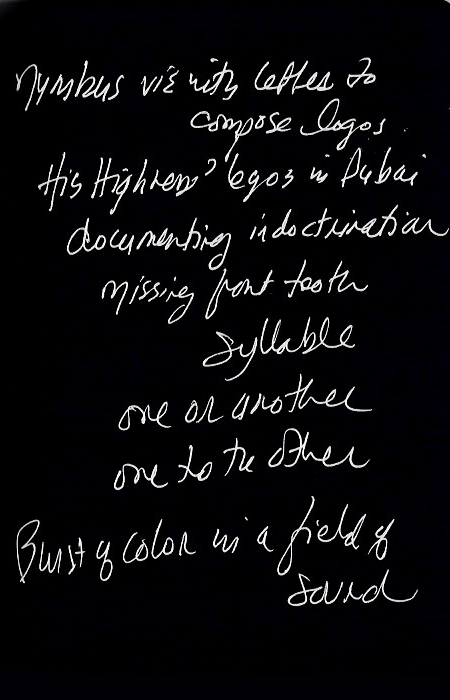 letter to
compose logos.
His Highness' legos in Dubai
documenting indoctrination
missing front tooth
syllable
one or another
one to the other
Burst of color in a field of
sound